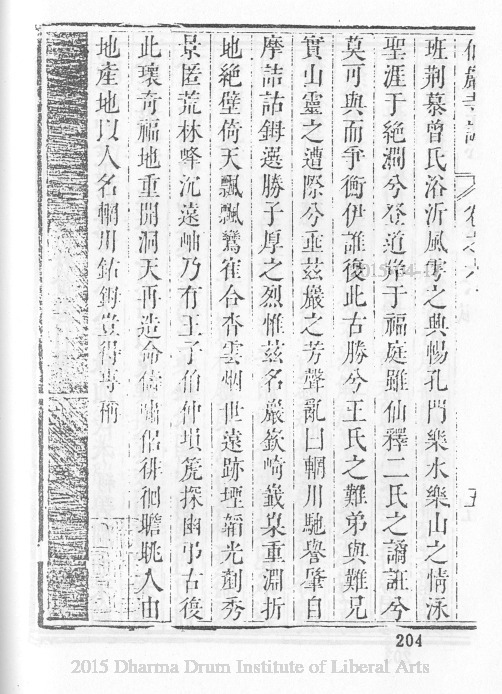 仙巖寺誌 卷之六 五
班荆慕曾氏浴沂風雩之興暢孔門樂水樂山之情泳
聖涯于絶澗兮登道岸于福庭雖仙釋二氏之謫誑兮
莫可與而爭衡伊誰復此古勝兮王氏之難弟與難兄
實山靈之遭際兮垂茲巖之芳聲亂曰輞川馳譽肇自
摩詰鈷鉧選勝子厚之烈惟茲名巖嶔崎嶻嶪重淵折
地絶壁倚天飄飄鸞隺合沓雲烟世遠跡堙韜光剷秀
景匿荒林峰沉遠岫乃有王子伯仲塤箎探幽弔古復
此瓌奇福地重開洞天再造命儔嘯侶徘徊瞻眺人由
地產地以人名輞川鈷鉧豈得專稱
204
2015 Dharma Drum Institute of Liberal Arts